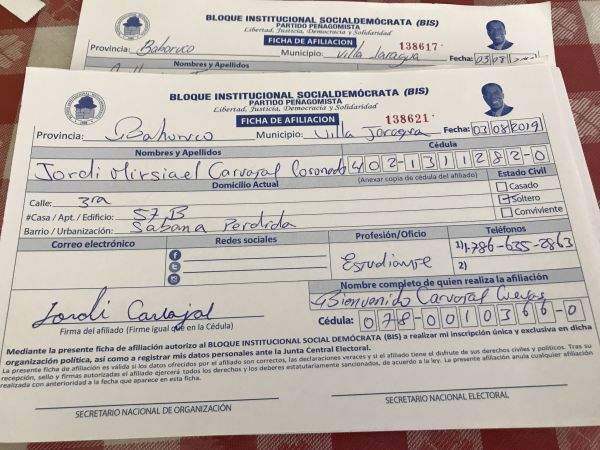 BLOQUE INSTITUCIONAL SOCIALDEMÓCRATA (BIS)
PARTIDO PEÑAGOMISTA
Libertad, Justicia, Democracia y Solidaridad
FICHA DE AFILIACION
138617
Provincia: Bahoruco Municipio: Villa Jaragua Fecha: 03/08/
Nombres y Apellidos
BLOQUE INSTITUCIONAL SOCIALDEMÓCRATA (BIS)
PARTIDO PEÑAGOMISTA
Libertad, Justicia, Democracia y Solidaridad
FICHA DE AFILIACION 138621
Provincia: Bahoruco Municipio: Villa Jaragua Fecha: 03/08/2019
Nombres y Apellidos Cédula
Jordi Mirsiael Carvajal Coronado 402-1311282-0
Domicilio Actual (Anexar copia de cédula del afiliado) Estado Civil
Calle: 3ra
Casado
#Casa / Apt. / Edificio: 57 B
Soltero
Barrio / Urbanización: Sabana Perdida
Conviviente
Correo electrónico Redes sociales Profesión/Oficio Teléfonos
Estudiante
1) 1.786-635-2863
2)
Nombre completo de quien realiza la afiliación
Bienvenido Carvajal Cuevas
Jordi Carvajal
Cédula: 078-0010366-0
Firma del afiliado (Firme igual que en la Cédula)
Mediante la presente ficha de afiliación autorizo al BLOQUE INSTITUCIONAL SOCIAL DEMÓCRATA (BIS) a realizar mi inscripción única y exclusiva en dicha
organización política, así como a registrar mis datos personales ante la Junta Central Electoral.
La presente ficha de afiliación es válida si los datos ofrecidos por el afiliado son correctos, las declaraciones veraces y si el afiliado tiene el disfrute de sus derechos civiles y políticos. Tras su
recepción, sello y firmas autorizadas el afiliado ejercerá todos los derechos y los deberes estatutariamente sancionados, de acuerdo a la ley. La presente afiliación anula cualquier afiliación
realizada con anterioridad a la fecha que aparece en esta ficha.
SECRETARIO NACIONAL DE ORGANIZACIÓN
SECRETARIO NACIONAL ELECTORAL